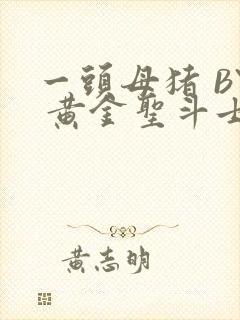 一頭母猪 BY
黄金聖斗士
黄志明